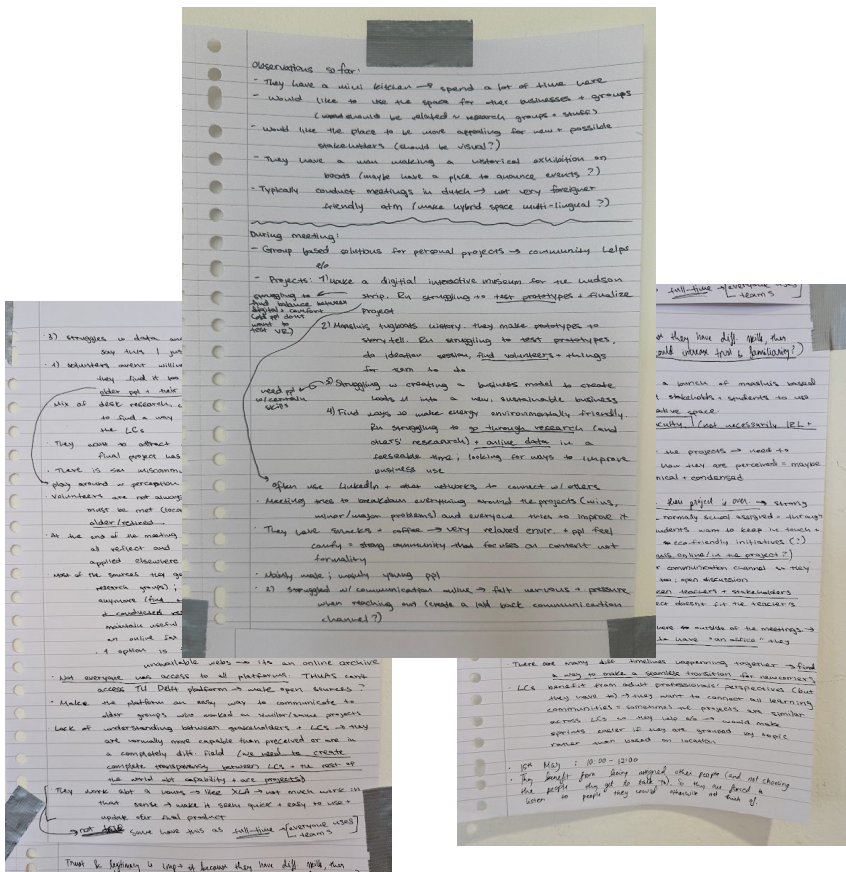 Observations so far:
- They have a mini kitchen → spend a lot of time here
- Would like to use the space for other businesses + groups
(should be related → research groups + stuff)
- Would like the place to be more appealing for new + possible
stakeholders (should be visual?)
- They have a man making a historical exhibition on
boats (maybe have a place to anounce events?)
- Typically conduct meetings in dutch → not very foreigner
friendly atm (make hybrid space multi-lingual?)
During meeting:
- Group based solutions for personal projects → community helps
e/o
- Projects: 1) make a digitial interactive museum for the Hudson
strip. Rn struggling to test prototypes + finalize
project
struggling to
find balance between
digital + comfort
(old ppl dont
want to
test VR)
2) Maasluis tugboats history. they make prototypes to
story tell. Rn struggling to test prototypes,
do ideation session, find volunteers + things
for them to do
need ppl
w/ certain
skills
3) Struggling w creating a business model to create
it into a new, sustainable business
4) Find ways to make energy environmentally friendly.
Rn struggling to go through research (and
others' research) + online data in a
forseeable time; looking for ways to improve
business use
Often use LinkedIn + other networks to connect w/ others
- Meeting tries to breakdown everything around the projects (wins,
minor/major problems) and everyone tries to improve it
- They have snacks + coffee → very relaxed envir. + ppl feel
comfy = strong community that focuses on content not
formality
- Mainly male; mainly young ppl
- struggled w/ communication online → felt nervous + pressure
when reaching out (create a laid back communication
channel?)
3) struggles w data
say this I just
4) volunteers arent willin
they find it
older ppl + their
Mix of desk research,
to find a way
the LCs
- They want to attract
final project has
- There is
play around w perception
- Volunteers are not always
must be met
older/retired
- At the end of the meeting
reflect and
applied elsewhere
Most of the sources they
research groups);
anymore
+ conducted
maintain useful
an online
1 option is
unavailable webs → its an online archive
- Not everyone has access to all platforms. THUAS can't
access TU Delft platform → make open sources?
- Make the platform an easy way to communicate to
older groups who worked on similar/same projects
Lack of understanding between stakeholders + LCs → they
are normally more capable than perceived or are in
a completely diff. field (we need to create
complete transparency between LCs + the rest of
the world abt capability + projects)
They work abt
that sense → make it seem quick + easy to use +
update final product
→ some have this as full-time → [everyone uses
teams
Trust & legitimacy is imp → because they have diff. skills, this
full-time → [everyone uses
teams
they have diff. skills, this
could increase trust & familiarity?)
a bunch of maasluis based
stakeholders + students to use
space.
(not necessarily IRL +
the projects → need to
how they are perceived = maybe
+ condensed
project is over. → strong
normally school assigned = through
students want to keep in touch +
eco-friendly initiatives (?)
online/in the project?)
communication channel so they
open discussion
teachers + stakeholders
doesnt fit the teacher's
here outside of the meetings →
have "an office" they
- There are many diff timelines happenning together → find
a way to make a seamless transition for newcomers
- LCs benefit from adult professionals' perspectives (but
they have to) → they want to connect all learning
communities = sometimes the projects are similar
across LCs so they help e/o → would make
sprints easier if they are grouped by topic
rather than based on location
- 15th May : 10:00 - 12:00
- They benefit from being assigned other people (and not choosing
the people they get to talk to) so they are forced to
listen to people they could otherwise not think of.